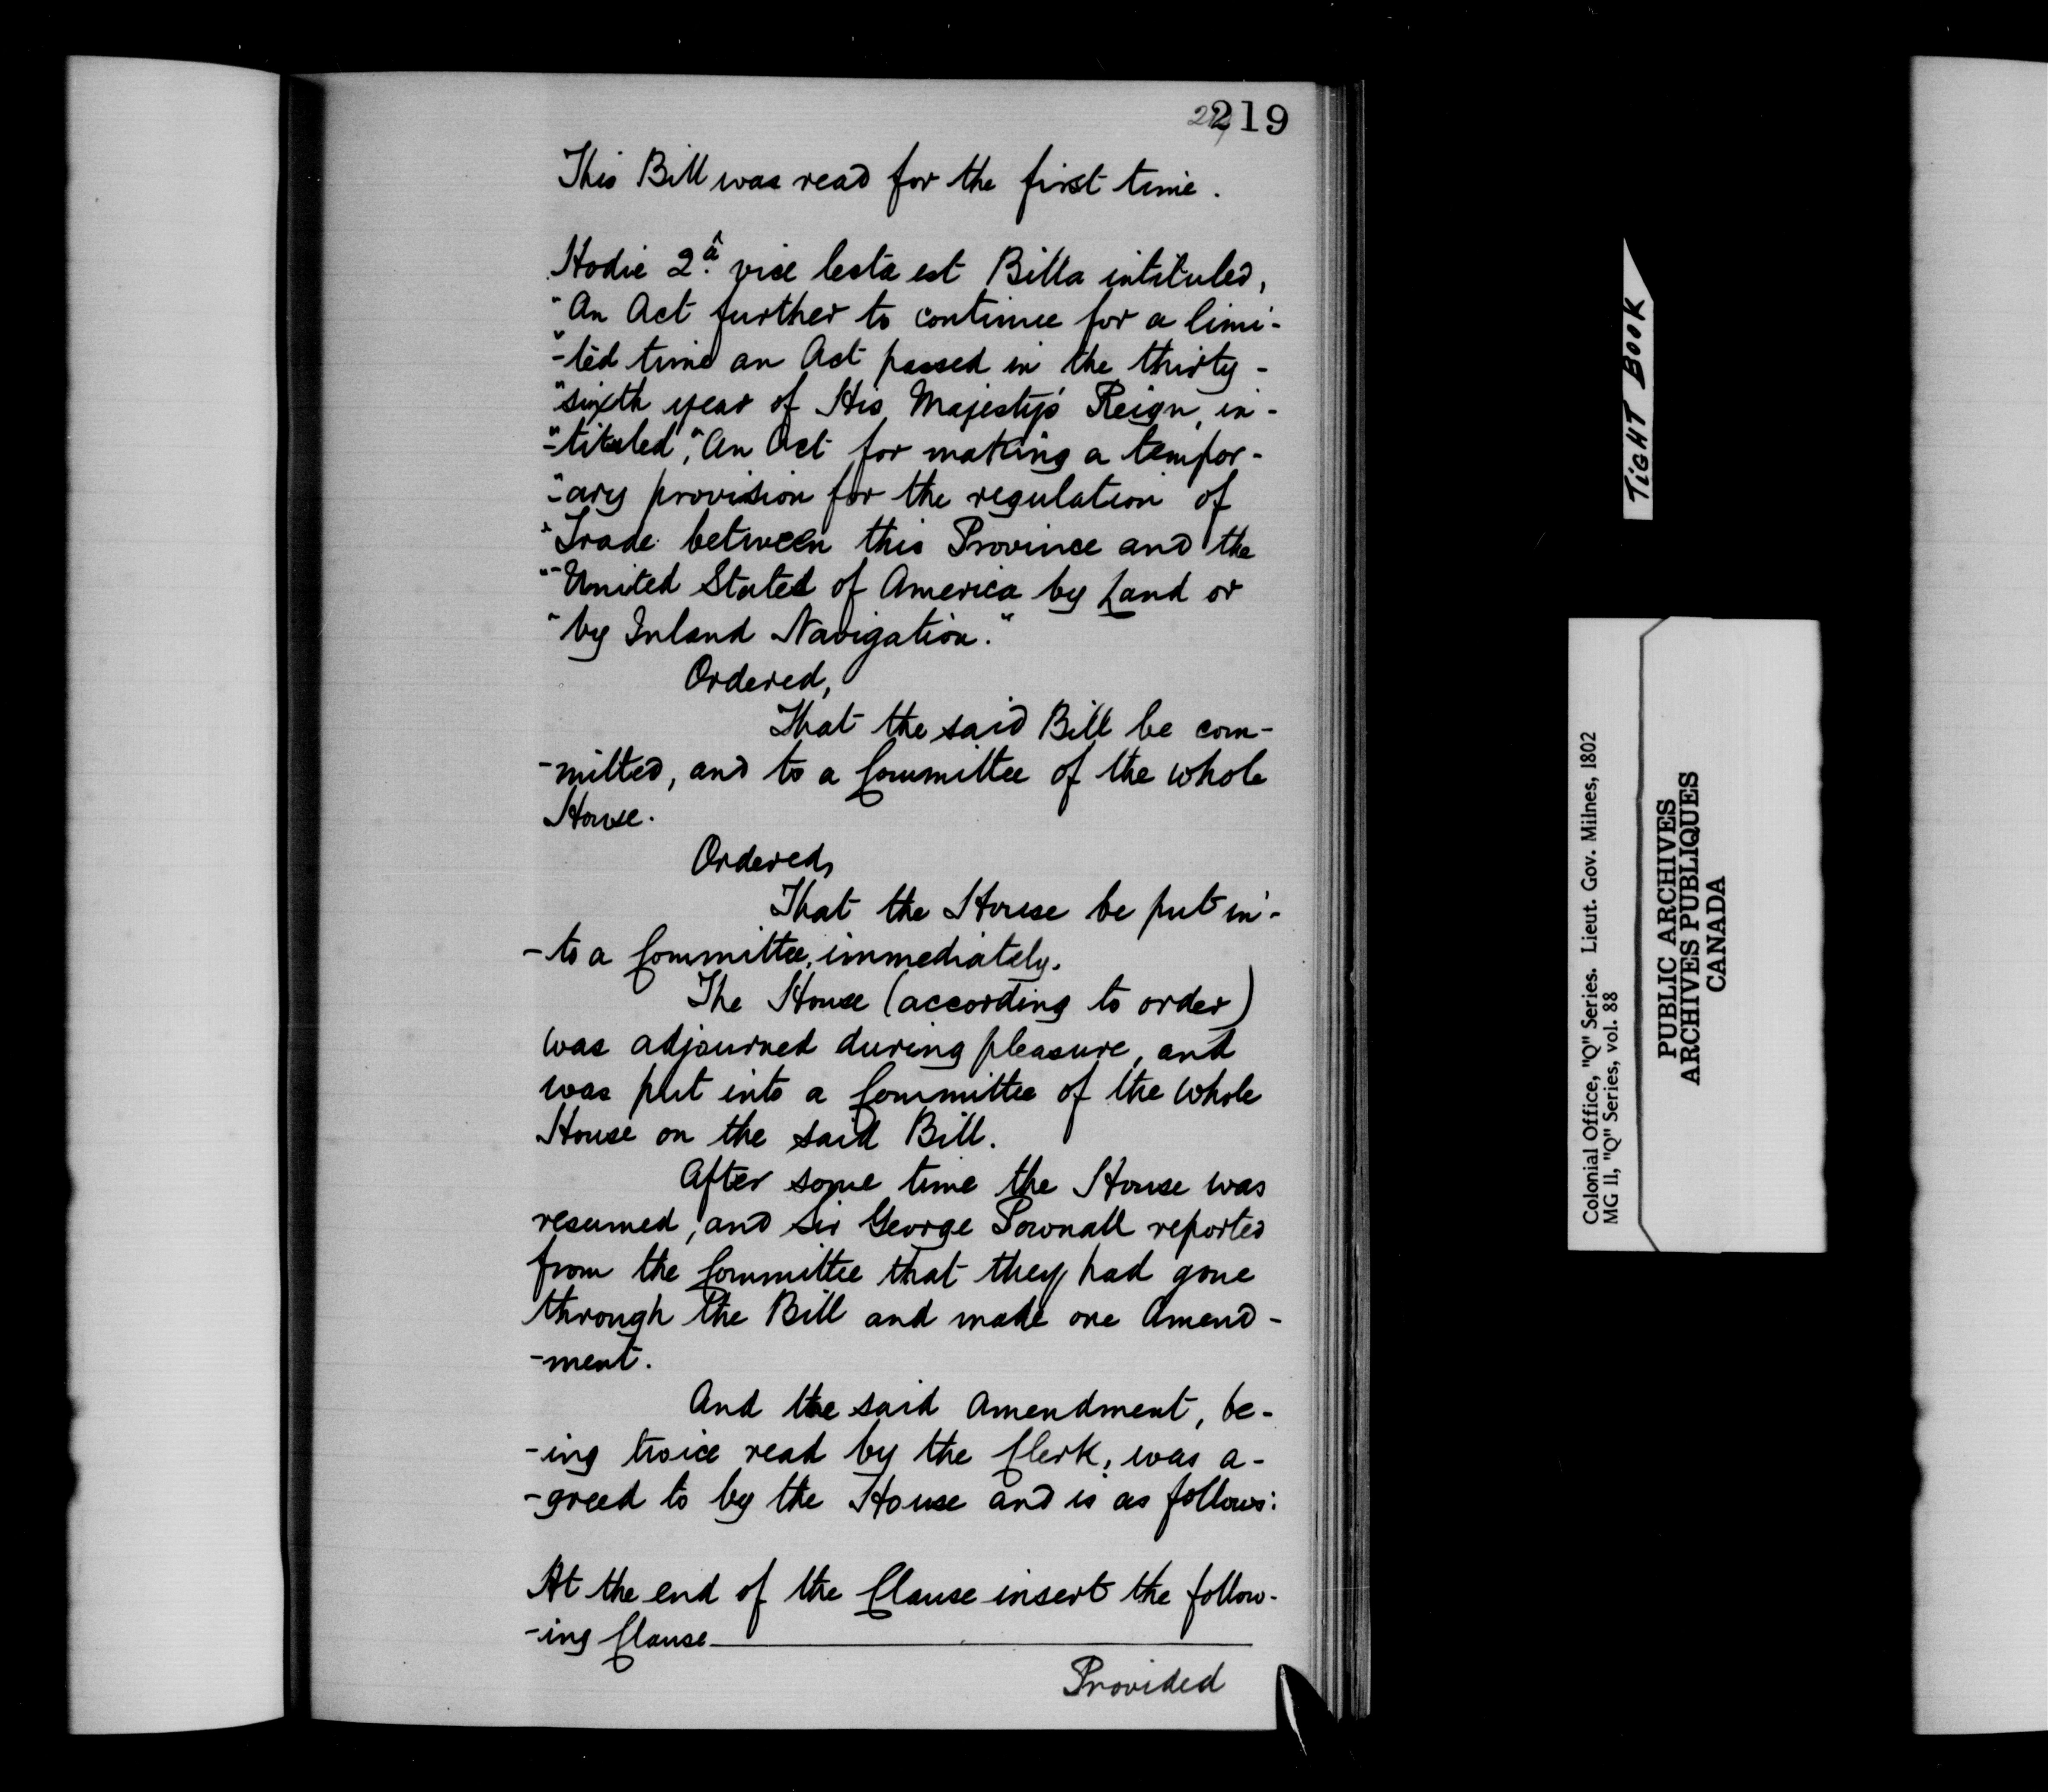 219
This Bill was read for the first time.
Hodie 2.â vice lecta est Billa intituled,
"An Act further to continue for a limi-
"-ted time an Act passed in the thirty-
"sixth year of His Majesty's Reign, in-
"-tituled, "An Act for making a tempor-
"-ary provision for the regulation of
"Trade between this Province and the
"-United States of America by Land or
"by Inland Navigation."
Ordered,
That the said Bill be com-
-mitted, and to a Committee of the whole
House.
Ordered,
That the House be put in-
-to a Committee, immediately.
The House (according to order)
was adjourned during pleasure, and
was put into a Committee of the whole
House on the said Bill.
After some time the House was
resumed, and Sir George Pownall reported
from the Committee that they had gone
through the Bill and made one Amend-
-ment.
And the said amendment, be-
-ing twice read by the Clerk, was a-
-greed to by the House and is as follows:
At the end of the Clause insert the follow-
-ing Clause
Provided
TIGHT BOOK
Colonial Office, "Q" Series. Lieut. Gov. Milnes, 1802
MG 11, "Q" Series, vol. 88
PUBLIC ARCHIVES
ARCHIVES PUBLIQUES
CANADA